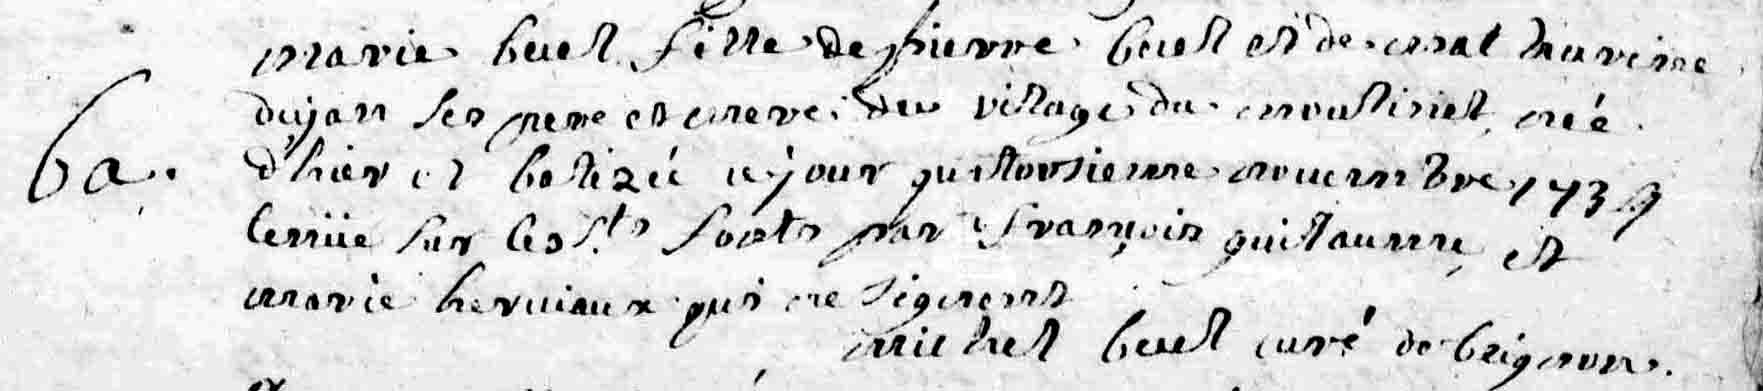 marie buel fille de pierre buel et de mat haurine
dujan ses pere et mere du village du moulinet née
ba. d'hier et batizée ce jour quatorsieme nouembre 1739
tenüe sur les st fonts par françois guillaume et
marie heruiaux qui ne signent
michel buel curé de beignon.